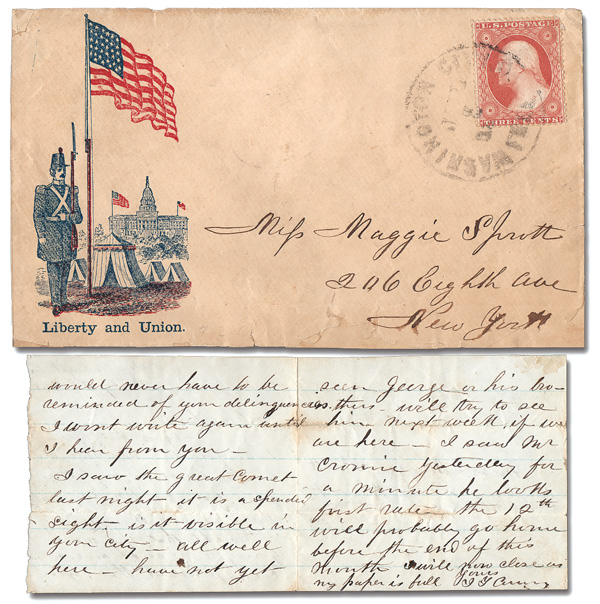 U.S. POSTAGE
THREE CENTS
WASHINGTON CITY
Miss Maggie Sprott
206 Eighth Ave
New York
Liberty and Union.
would never have to be
reminded of your delinquencies.
I wont write again until
I hear from you —
I saw the great comet
last night it is a splendid
sight. is it visible in
your city — all well
here — have not yet
seen George or his bro-
thers — will try to see
him next week, if we
are here — I saw Mr
Cromie yesterday for
a minute he looks
first rate — the 12th
will probably go home
before the end of this
month I will now close as
my paper is full Yours